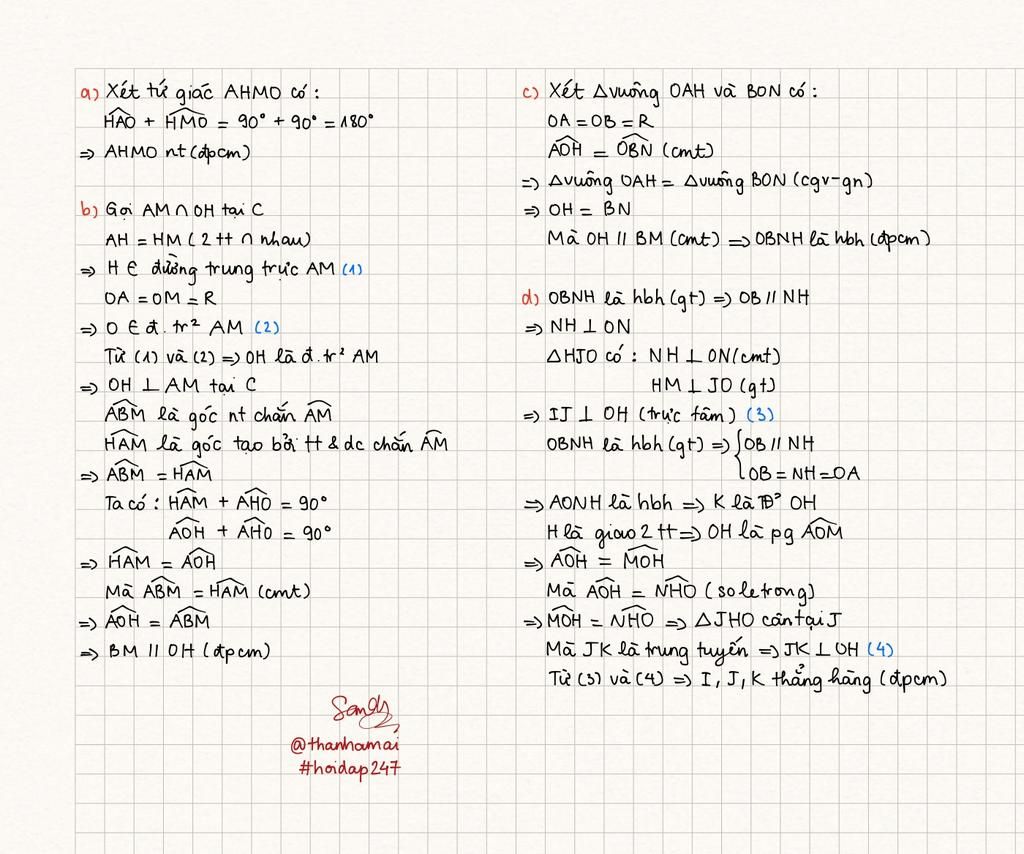 a) Xét tứ giác AHMO có:
\widehat{HAO} + \widehat{HMO} = 90° + 90° = 180°
⇒ AHMO nt (đpcm)
b) Gọi AM ∩ OH tại C
AH = HM (2 tt ∩ nhau)
⇒ H ∈ đường trung trực AM (1)
OA = OM = R
⇒ O ∈ đ.tr² AM (2)
Từ (1) và (2) ⇒ OH là đ.tr² AM
⇒ OH ⊥ AM tại C
\widehat{ABM} là góc nt chắn \widehat{AM}
\widehat{HAM} là góc tạo bởi tt & dc chắn \widehat{AM}
⇒ \widehat{ABM} = \widehat{HAM}
Ta có: \widehat{HAM} + \widehat{AHO} = 90°
\widehat{AOH} + \widehat{AHO} = 90°
⇒ \widehat{HAM} = \widehat{AOH}
Mà \widehat{ABM} = \widehat{HAM} (cmt)
⇒ \widehat{AOH} = \widehat{ABM}
⇒ BM // OH (đpcm)
Sandy
@thanhamai
#hoidap247
c) Xét Δvuông OAH và BON có:
OA = OB = R
\widehat{AOH} = \widehat{OBN} (cmt)
⇒ Δvuông OAH = Δvuông BON (cgv-gn)
⇒ OH = BN
Mà OH // BM (cmt) ⇒ OBNH là hbh (đpcm)
d) OBNH là hbh (gt) ⇒ OB // NH
⇒ NH ⊥ ON
ΔHJO có: NH ⊥ ON (cmt)
HM ⊥ JO (gt)
⇒ IJ ⊥ OH (trực tâm) (3)
OBNH là hbh (gt) ⇒ { OB // NH
OB = NH = OA
⇒ AONH là hbh ⇒ K là TĐ² OH
H là giao 2 tt ⇒ OH là pg \widehat{AOM}
⇒ \widehat{AOH} = \widehat{MOH}
Mà \widehat{AOH} = \widehat{NHO} (so le trong)
⇒ \widehat{MOH} = \widehat{NHO} ⇒ ΔJHO cân tại J
Mà JK là trung tuyến ⇒ JK ⊥ OH (4)
Từ (3) và (4) ⇒ I, J, K thẳng hàng (đpcm)